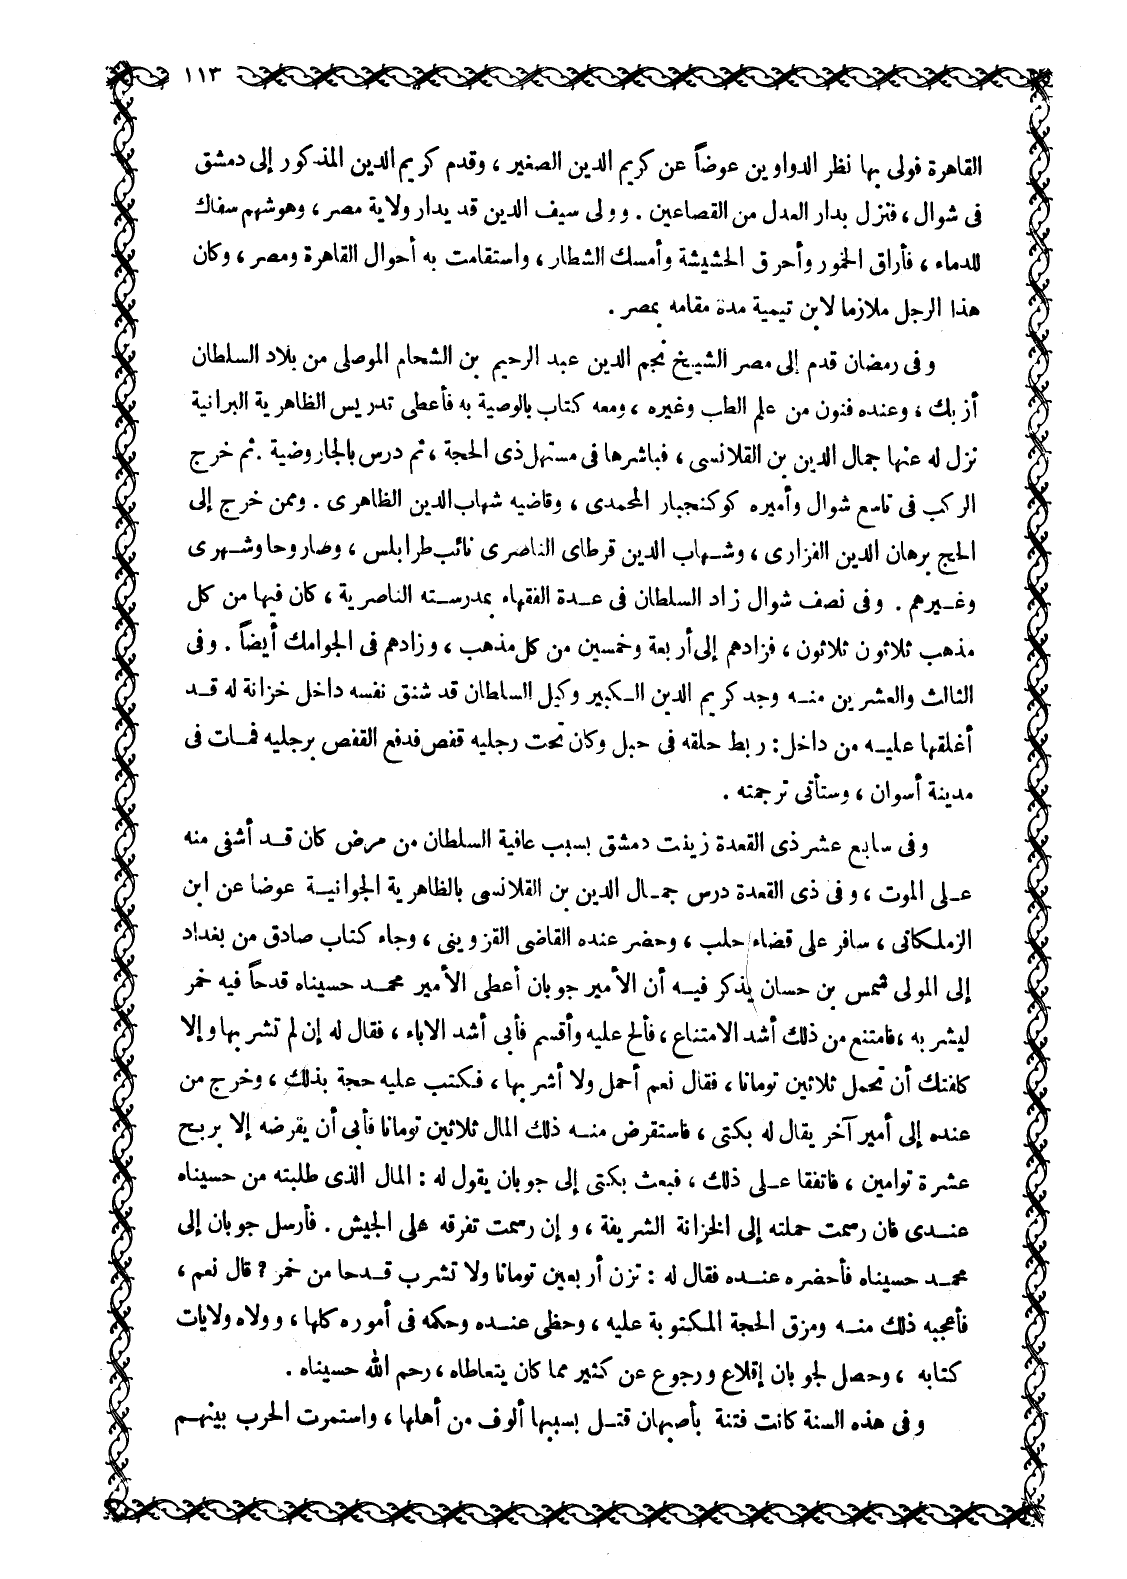 ١١٣
القاهرة فولى بها نظر الدواوين عوضاً عن كريم الدين الصغير ، وقدم كريم الدين المذكور إلى دمشق
فى شوال ، فنزل بدار العدل من القصاعين . وولى سيف الدين قديدار ولاية مصر ، وهو شهم سفاك
للدماء ، فأراق الخمور وأحرق الحشيشة وأمسك الشطار ، واستقامت به أحوال القاهرة ومصر ، وكان
هذا الرجل ملازما لابن تيمية مدة مقامه بمصر .
وفى رمضان قدم إلى مصر الشيخ نجم الدين عبد الرحيم بن الشحام الموصلى من بلاد السلطان
أزبك ، وعنده فنون من علم الطب وغيره ، ومعه كتاب بالوصية به فأعطى تدريس الظاهرية البرانية
نزل له عنها جمال الدين بن القلانسى ، فباشرها فى مستهل ذى الحجة ، ثم درس بالجاروضية . ثم خرج
الركب فى تاسع شوال وأميره كوكنجبار المحمدى ، وقاضيه شهاب الدين الظاهرى . وممن خرج إلى
الحج برهان الدين الفزارى ، وشهاب الدين قرطاى الناصرى نائب طرابلس ، وصاروحا وشهرى
وغيرهم . وفى نصف شوال زاد السلطان فى عدة الفقهاء بمدرسته الناصرية ، كان فيها من كل
مذهب ثلاثون ثلاثون ، فزادهم إلى أربعة وخمسين من كل مذهب ، وزادهم فى الجوامك أيضاً . وفى
الثالث والعشرين منه وجد كريم الدين الكبير وكيل السلطان قد شنق نفسه داخل خزانة له قد
أغلقها عليه من داخل : ربط حلقه فى حبل وكان تحت رجليه قفص فدفع القفص برجليه فمات فى
مدينة أسوان ، وستأتى ترجمته .
وفى سابع عشر ذى القعدة زينت دمشق بسبب عافية السلطان من مرض كان قد أشفى منه
على الموت ، وفى ذى القعدة درس جمال الدين بن القلانسى بالظاهرية الجوانية عوضا عن ابن
الزملكانى ، سافر على قضاء حلب ، وحضر عنده القاضى القزوينى ، وجاء كتاب صادق من بغداد
إلى المولى شمس بن حسان يذكر فيه أن الأمير جوبان أعطى الأمير محمد حسيناه قدحاً فيه خمر
ليشربه ، فامتنع من ذلك أشد الامتناع ، فألح عليه وأقسم فأبى أشد الاباء ، فقال له إن لم تشربها وإلا
كلفتك أن تحمل ثلاثين تومانا ، فقال نعم أحمل ولا أشربها ، فكتب عليه حجة بذلك ، وخرج من
عنده إلى أمير آخر يقال له بكتى ، فاستقرض منه ذلك المال ثلاثين تومانا فأبى أن يقرضه إلا بربح
عشرة توامين ، فاتفقا على ذلك ، فبعث بكتى إلى جوبان يقول له : المال الذى طلبته من حسيناه
عندى فان رسمت حملته إلى الخزانة الشريفة ، وإن رسمت تفرقه على الجيش . فأرسل جوبان إلى
محمد حسيناه فأحضره عنده فقال له : تزن أربعين تومانا ولا تشرب قدحا من خمر ? قال نعم ،
فأعجبه ذلك منه ومزق الحجة المكتوبة عليه ، وحظى عنده وحكمه فى أموره كلها ، وولاه ولايات
كتابه ، وحصل لجوبان إقلاع ورجوع عن كثير مما كان يتعاطاه ، رحم الله حسيناه .
وفى هذه السنة كانت فتنة بأصبهان قتل بسببها ألوف من أهلها ، واستمرت الحرب بينهم